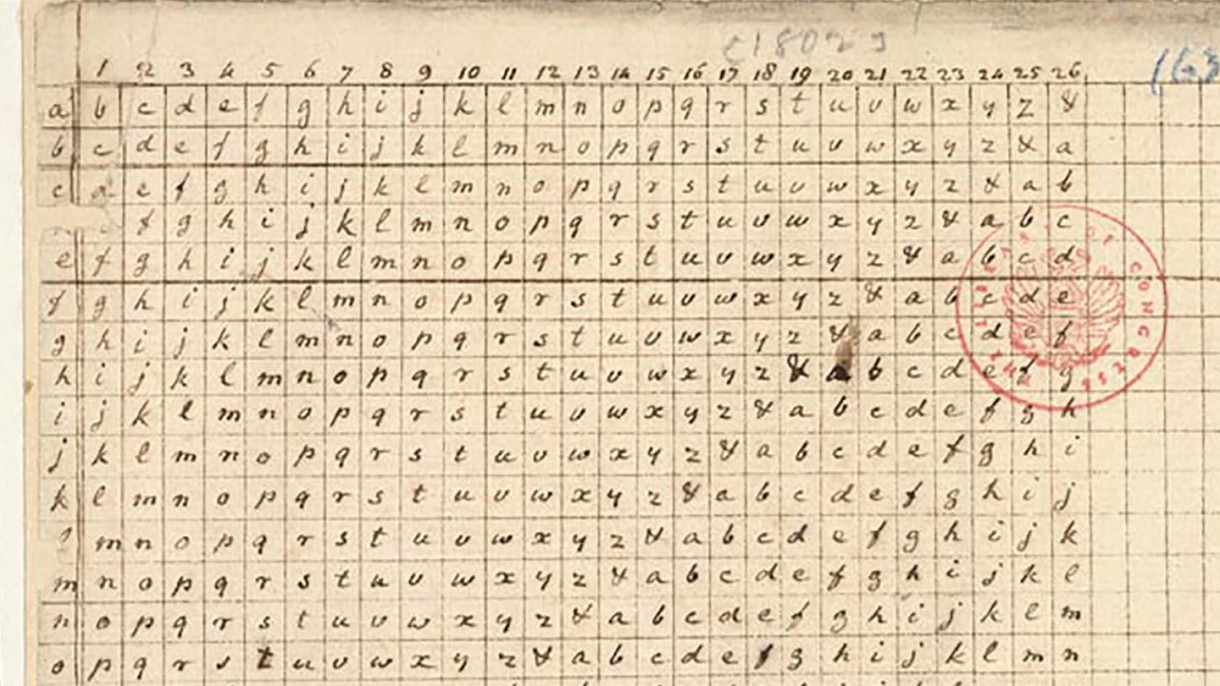 [1802]
1 2 3 4 5 6 7 8 9 10 11 12 13 14 15 16 17 18 19 20 21 22 23 24 25 26 (63
a b c d e f g h i j k l m n o p q r s t u v w x y z &
b c d e f g h i j k l m n o p q r s t u v w x y z & a
c d e f g h i j k l m n o p q r s t u v w x y z & a b
f g h i j k l m n o p q r s t u v w x y z & a b c
e f g h i j k l m n o p q r s t u v w x y z & a b c d
f g h i j k l m n o p q r s t u v w x y z & a b c d e
g h i j k l m n o p q r s t u v w x y z & a b c d e f
h i j k l m n o p q r s t u v w x y z & a b c d e f g
i j k l m n o p q r s t u v w x y z & a b c d e f g h
j k l m n o p q r s t u v w x y z & a b c d e f g h i
k l m n o p q r s t u v w x y z & a b c d e f g h i j
l m n o p q r s t u v w x y z & a b c d e f g h i j k
m n o p q r s t u v w x y z & a b c d e f g h i j k l
n o p q r s t u v w x y z & a b c d e f g h i j k l m
o p q r s t u v w x y z & a b c d e f g h i j k l m n
THE LIBRARY OF CONGRESS